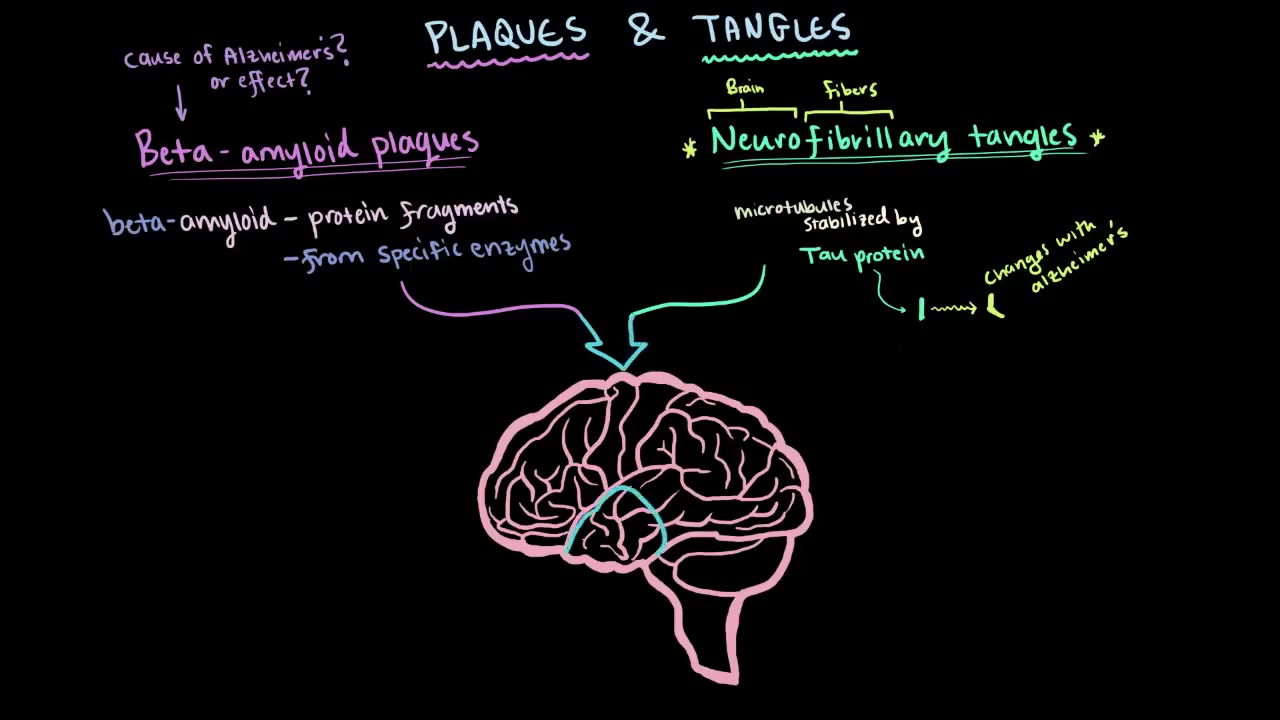 PLAQUES & TANGLES
cause of Alzheimer's?
or effect?
Beta-amyloid plaques
beta-amyloid - protein fragments
- from specific enzymes
Brain fibers
* Neurofibrillary tangles *
microtubules
stabilized by
Tau protein
changes with
alzheimer's